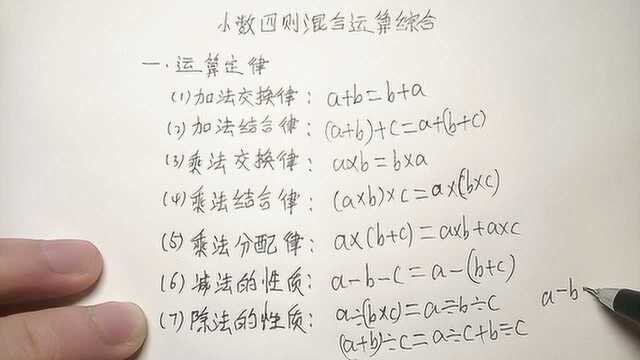 小数四则混合运算综合
一.运算定律
(1)加法交换律: a+b=b+a
(2)加法结合律: (a+b)+c=a+(b+c)
(3)乘法交换律: a×b=b×a
(4)乘法结合律: (a×b)×c=a×(b×c)
(5)乘法分配律: a×(b+c)=a×b+a×c
(6)减法的性质: a-b-c=a-(b+c)
(7)除法的性质: a÷(b×c)=a÷b÷c
(a+b)÷c=a÷c+b÷c
a-b